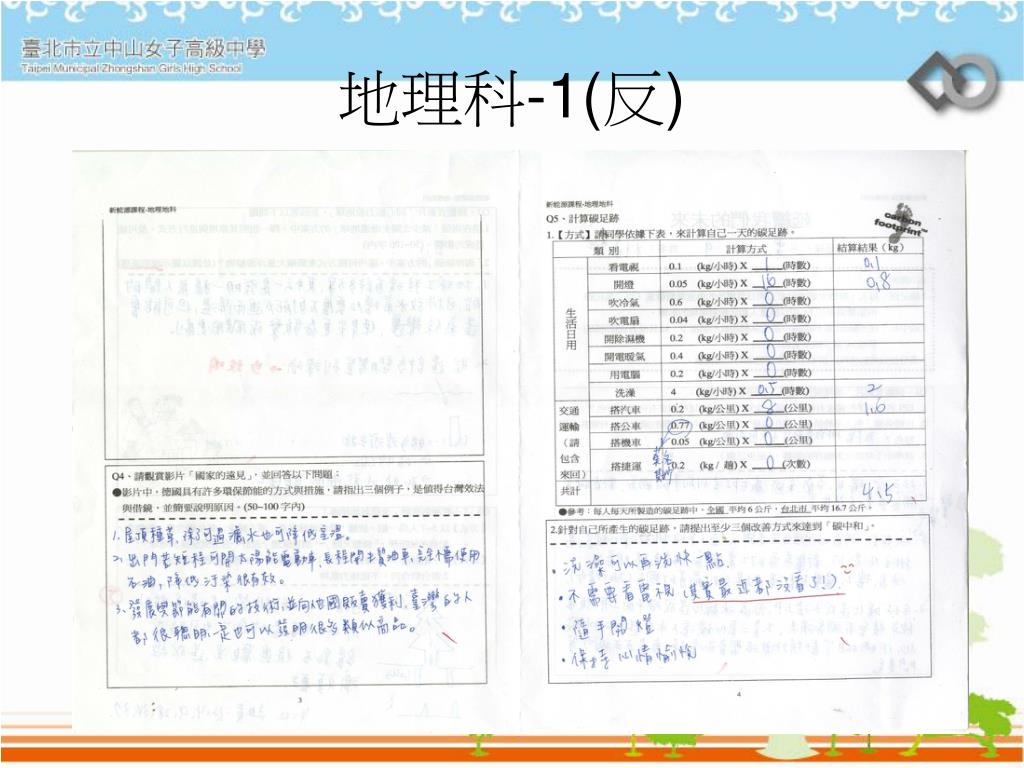 臺北市立中山女子高級中學
Taipei Municipal Zhongshan Girls High School
地理科-1(反)
新能源課程-地理地科
Q4、請觀賞影片「國家的遠見」，並回答以下問題：
●影片中，德國具有許多環保節能的方式與措施，請指出三個例子，是值得台灣效法
與借鏡，並簡要說明原因。(50~100 字內)
1. 屋頂種菜，除了可過濾水也可降低室溫。
2. 出門若短程可開太陽能電動車，長程開
石油，降低汙染很有效。
3. 發展與節能有關的技術，並向他國販賣獲利，臺灣的人
都很聰明，一定也可以發明很多類似商品。
3
新能源課程-地理地科
Q5、計算碳足跡
carbon footprint
1.【方式】請同學依據下表，來計算自己一天的碳足跡。
類 別 計算方式 結算結果（kg）
生活日用
看電視 0.1 (kg/小時) X 1 (時數) 0.1
開燈 0.05 (kg/小時) X 16 (時數) 0.8
吹冷氣 0.6 (kg/小時) X 0 (時數)
吹電扇 0.04 (kg/小時) X 0 (時數)
開除濕機 0.2 (kg/小時) X 0 (時數)
開電暖氣 0.4 (kg/小時) X 0 (時數)
用電腦 0.2 (kg/小時) X 0 (時數)
洗澡 4 (kg/小時) X 0.5 (時數) 2
交通運輸（請包含來回）
搭汽車 0.2 (kg/公里) X 8 (公里) 1.6
搭公車 0.77 (kg/公里) X 0 (公里)
搭機車 0.05 (kg/公里) X 0 (公里)
搭捷運 0.2 (kg / 趟) X 0 (次數)
共計 4.5
●參考：每人每天所製造的碳足跡中，全國 平均 6 公斤，台北市 平均 16.7 公斤
2.針對自己所產生的碳足跡，請提出至少三個改善方式來達到「碳中和」。
• 洗澡可以再洗快一點.
• 不需要看電視 (其實最近都沒看!!)
• 隨手關燈
• 保持心情愉悅
4